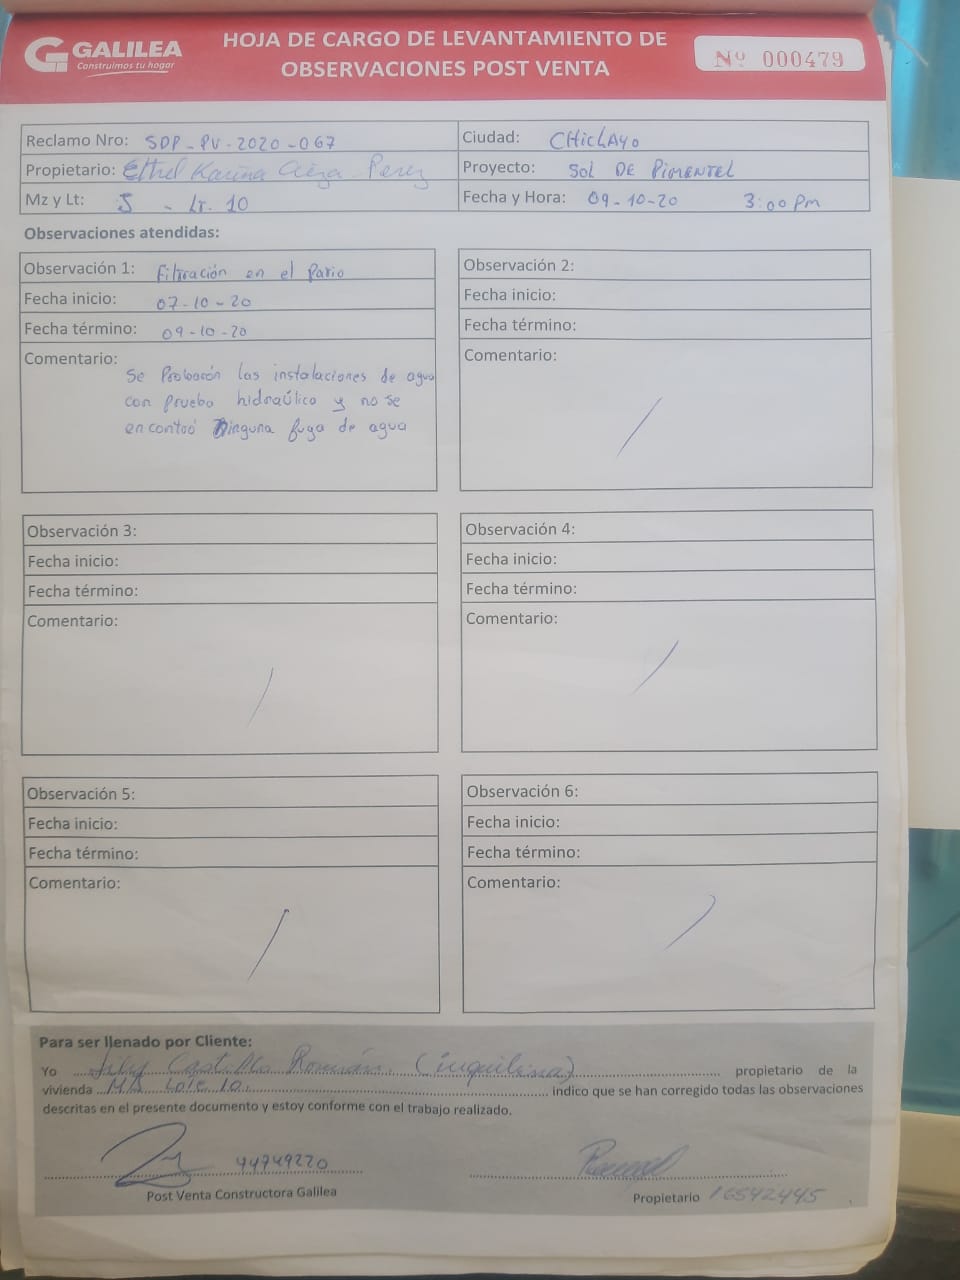 GALILEA
Construimos tu hogar
HOJA DE CARGO DE LEVANTAMIENTO DE
OBSERVACIONES POST VENTA
Nº 000479
Reclamo Nro: SDP-PV-2020-067
Ciudad: CHICLAYO
Propietario: Ethel Karina Cieza Perez
Proyecto: SOL DE PIMENTEL
Mz y Lt: J - Lt. 10
Fecha y Hora: 09-10-20 3:00 pm
Observaciones atendidas:
Observación 1: Filtración en el Patio
Fecha inicio: 07-10-20
Fecha término: 09-10-20
Comentario:
Se Probarón las instalaciones de agua
con prueba hidraúlico y no se
encontró Ninguna fuga de agua
Observación 2:
Fecha inicio:
Fecha término:
Comentario:
Observación 3:
Fecha inicio:
Fecha término:
Comentario:
Observación 4:
Fecha inicio:
Fecha término:
Comentario:
Observación 5:
Fecha inicio:
Fecha término:
Comentario:
Observación 6:
Fecha inicio:
Fecha término:
Comentario:
Para ser llenado por Cliente:
Yo Lily Castillo Román. (inquilina) propietario de la
vivienda Lote 10. indico que se han corregido todas las observaciones
descritas en el presente documento y estoy conforme con el trabajo realizado.
44749270
Post Venta Constructora Galilea
Propietario 16542445